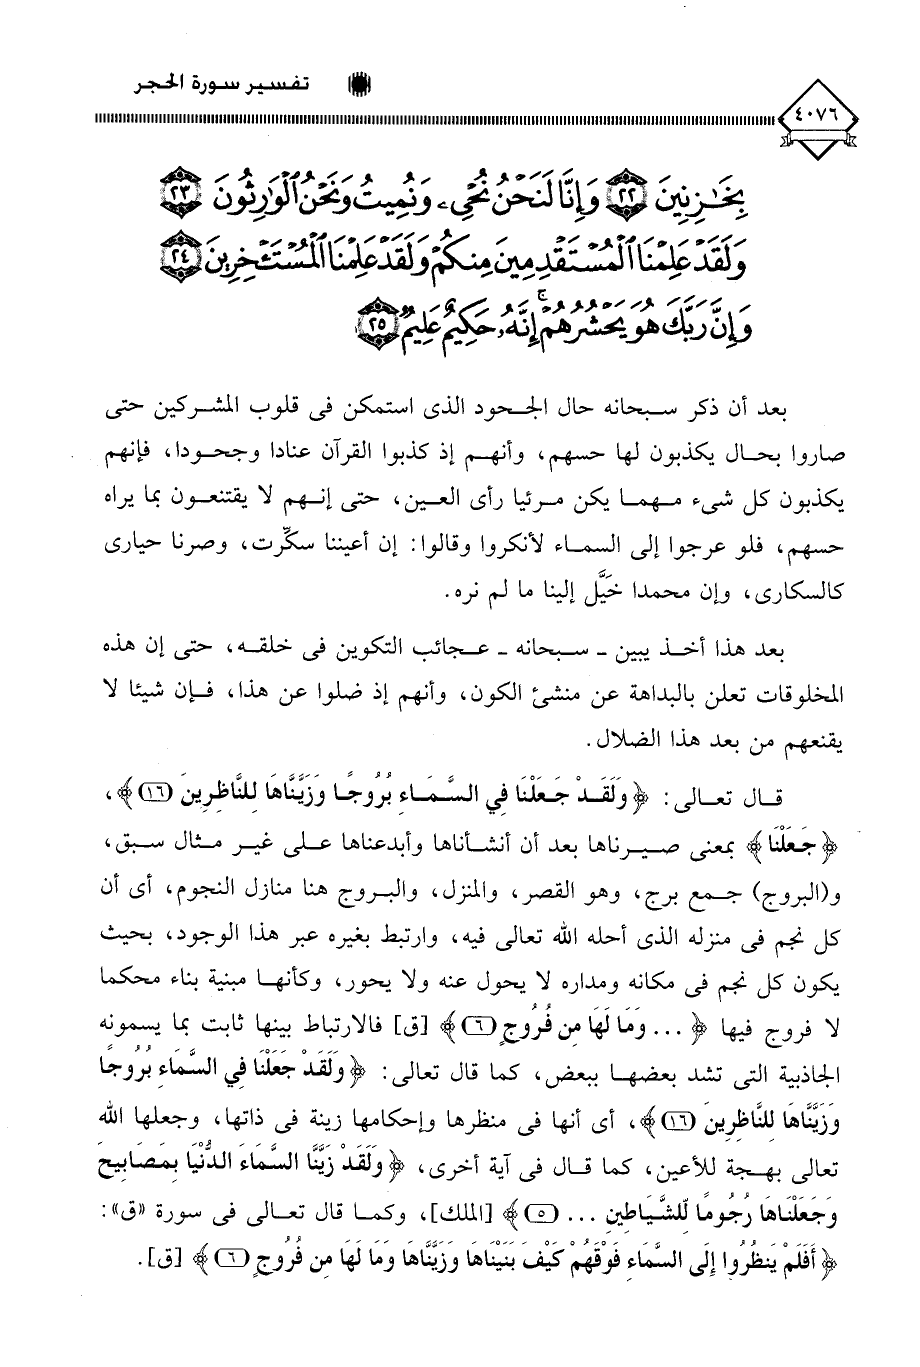 تفسير سورة الحجر
٤٠٧٦
بِخَـٰزِنِينَ ٢٢ وَإِنَّا لَنَحْنُ نُحْىِۦ وَنُمِيتُ وَنَحْنُ ٱلْوَٰرِثُونَ ٢٣
وَلَقَدْ عَلِمْنَا ٱلْمُسْتَقْدِمِينَ مِنكُمْ وَلَقَدْ عَلِمْنَا ٱلْمُسْتَـْٔخِرِينَ ٢٤
وَإِنَّ رَبَّكَ هُوَ يَحْشُرُهُمْ ۚ إِنَّهُۥ حَكِيمٌ عَلِيمٌ ٢٥
بعد أن ذكر سبحانه حال الجحود الذى استمكن فى قلوب المشركين حتى
صاروا بحال يكذبون لها حسهم، وأنهم إذ كذبوا القرآن عنادا وجحودا، فإنهم
يكذبون كل شىء مهما يكن مرئيا رأى العين، حتى إنهم لا يقتنعون بما يراه
حسهم، فلو عرجوا إلى السماء لأنكروا وقالوا: إن أعيننا سكِّرت، وصرنا حيارى
كالسكارى، وإن محمدا خَيَّل إلينا ما لم نره.
بعد هذا أخذ يبين ـ سبحانه ـ عجائب التكوين فى خلقه، حتى إن هذه
المخلوقات تعلن بالبداهة عن منشئ الكون، وأنهم إذ ضلوا عن هذا، فإن شيئا لا
يقنعهم من بعد هذا الضلال.
قال تعالى: ﴿ وَلَقَدْ جَعَلْنَا فِي السَّمَاءِ بُرُوجًا وَزَيَّنَّاهَا لِلنَّاظِرِينَ (١٦) ﴾،
﴿ جَعَلْنَا ﴾ بمعنى صيرناها بعد أن أنشأناها وأبدعناها على غير مثال سبق،
و(البروج) جمع برج، وهو القصر، والمنزل، والبروج هنا منازل النجوم، أى أن
كل نجم فى منزله الذى أحله الله تعالى فيه، وارتبط بغيره عبر هذا الوجود، بحيث
يكون كل نجم فى مكانه ومداره لا يحول عنه ولا يحور، وكأنها مبنية بناء محكما
لا فروج فيها ﴿ ... وَمَا لَهَا مِن فُرُوجٍ (٦) ﴾ [ق] فالارتباط بينها ثابت بما يسمونه
الجاذبية التى تشد بعضها ببعض، كما قال تعالى: ﴿ وَلَقَدْ جَعَلْنَا فِي السَّمَاءِ بُرُوجًا
وَزَيَّنَّاهَا لِلنَّاظِرِينَ (١٦) ﴾، أى أنها فى منظرها وإحكامها زينة فى ذاتها، وجعلها الله
تعالى بهجة للأعين، كما قال فى آية أخرى، ﴿ وَلَقَدْ زَيَّنَّا السَّمَاءَ الدُّنْيَا بِمَصَابِيحَ
وَجَعَلْنَاهَا رُجُومًا لِّلشَّيَاطِينِ ... (٥) ﴾ [الملك]، وكما قال تعالى فى سورة «ق»:
﴿ أَفَلَمْ يَنظُرُوا إِلَى السَّمَاءِ فَوْقَهُمْ كَيْفَ بَنَيْنَاهَا وَزَيَّنَّاهَا وَمَا لَهَا مِن فُرُوجٍ (٦) ﴾ [ق].